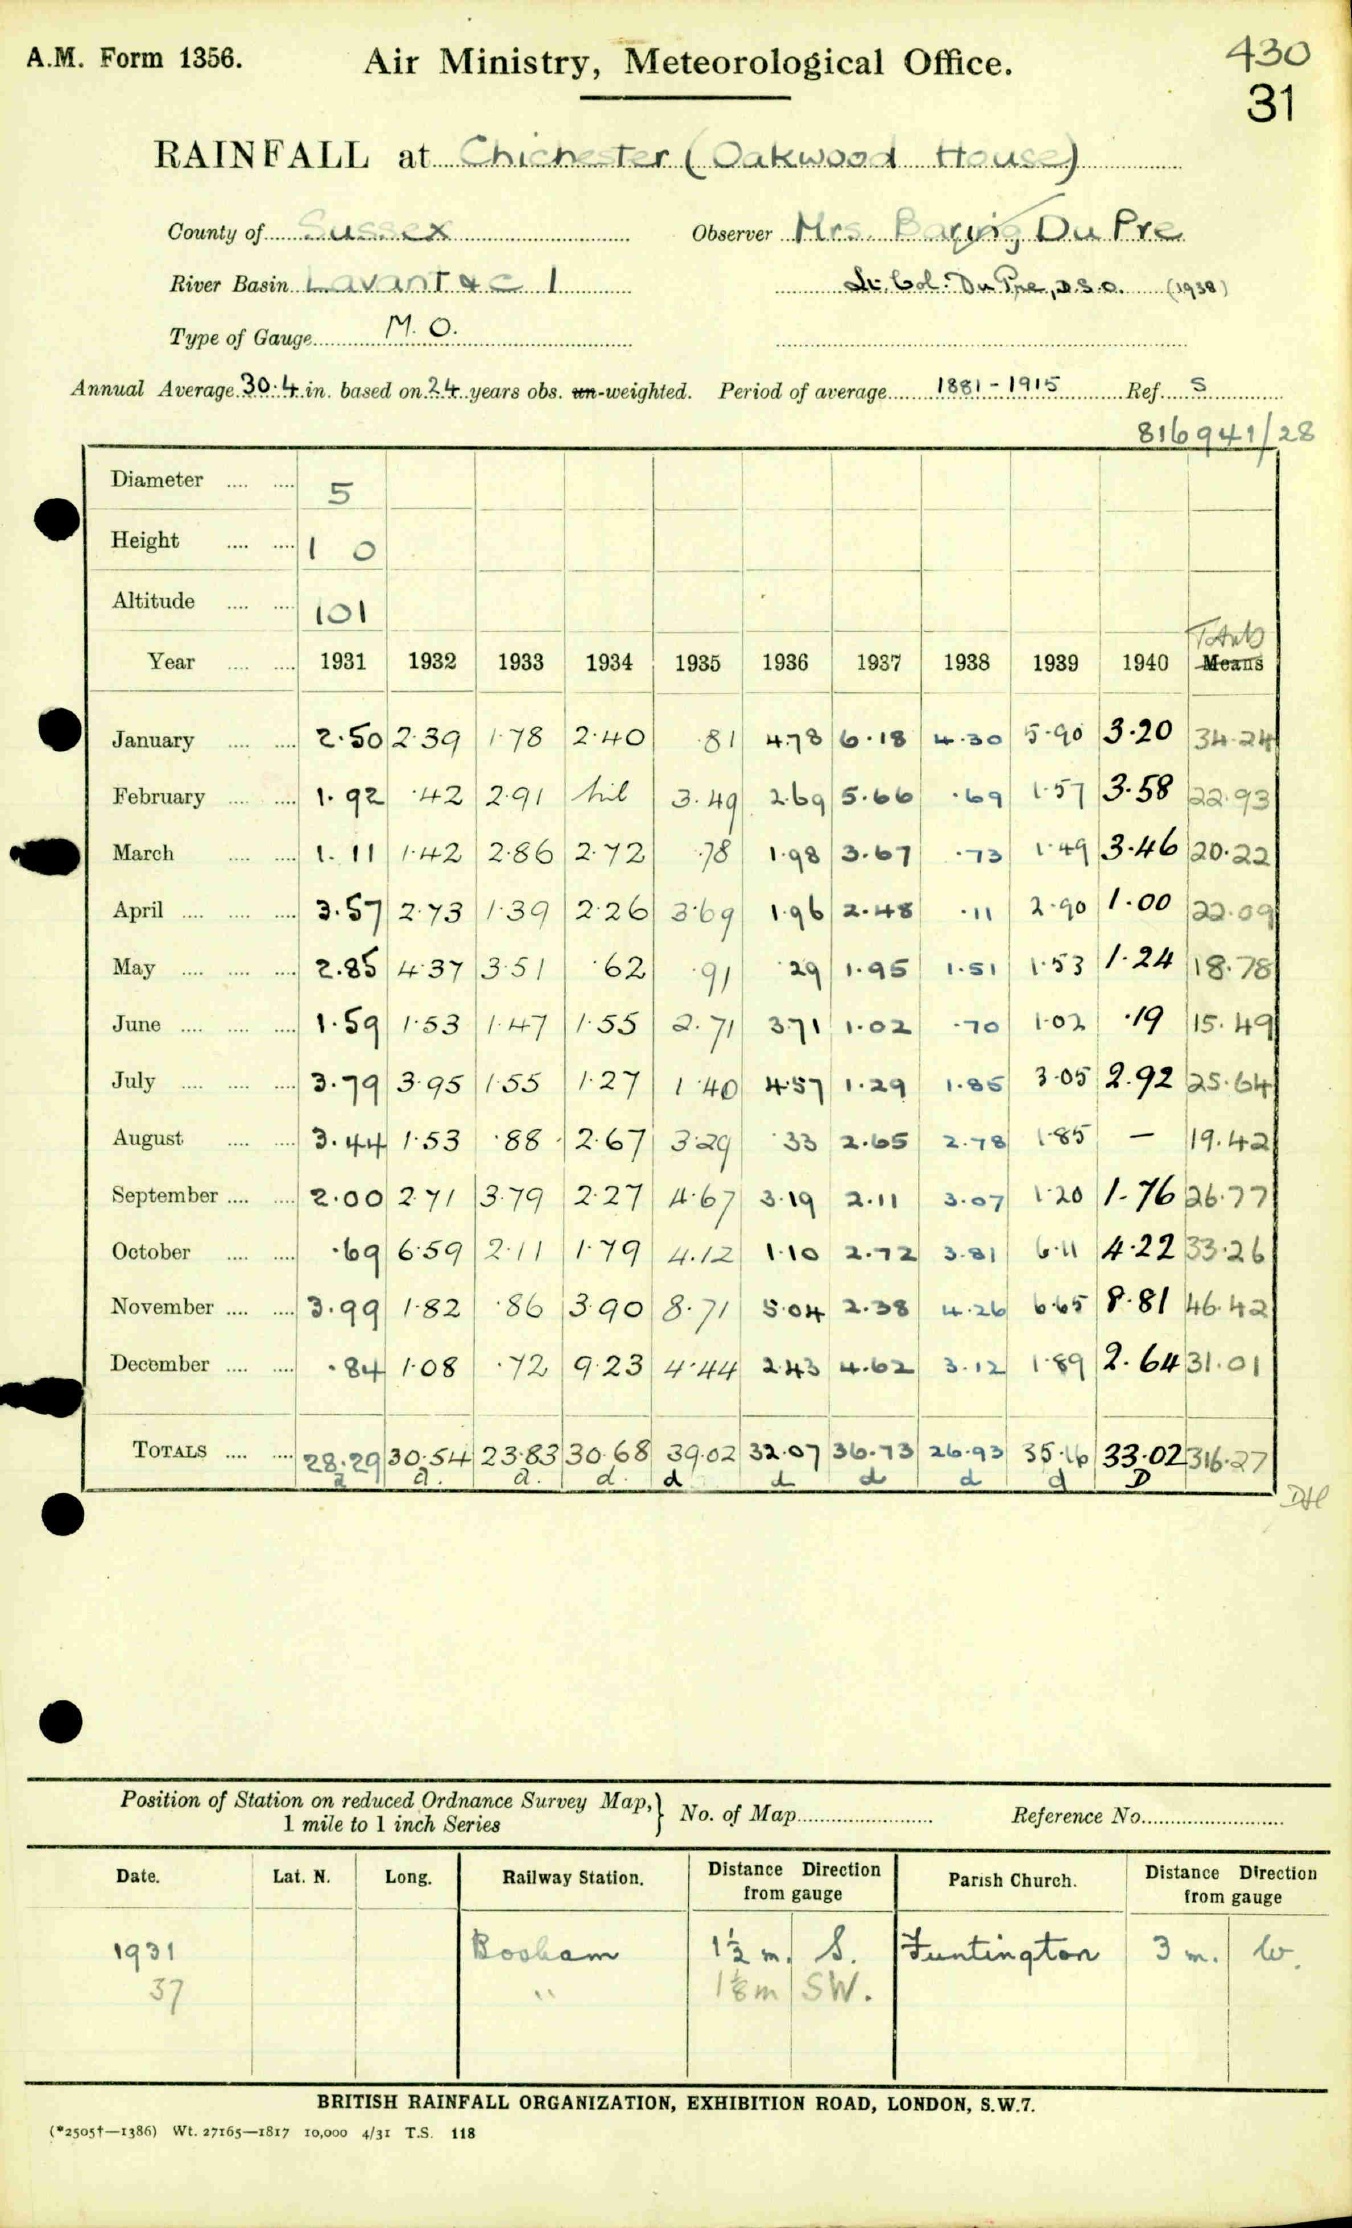 A.M. Form 1356. Air Ministry, Meteorological Office. 430
31
RAINFALL at Chichester (Oakwood House)
County of Sussex Observer Mrs. Baring Du Pre
River Basin Lavant &c 1 Lt. Col. Du Pre, D.S.O. (1938)
Type of Gauge M.O.
Annual Average 30.4 in. based on 24 years obs. un-weighted. Period of average 1881-1915 Ref. S
816941/28
Diameter .... .... 5
Height .... .... 1 0
Altitude .... .... 101
Totals
Year .... .... 1931 1932 1933 1934 1935 1936 1937 1938 1939 1940 Means
January .... .... 2.50 2.39 1.78 2.40 .81 4.78 6.18 4.30 5.90 3.20 34.24
February .... .... 1.92 .42 2.91 nil 3.49 2.69 5.66 .69 1.57 3.58 22.93
March .... .... 1.11 1.42 2.86 2.72 .78 1.98 3.67 .73 1.49 3.46 20.22
April .... .... .... 3.57 2.73 1.39 2.26 3.69 1.96 2.48 .11 2.90 1.00 22.09
May .... .... .... 2.85 4.37 3.51 .62 .91 .29 1.95 1.51 1.53 1.24 18.78
June .... .... .... 1.59 1.53 1.47 1.55 2.71 3.71 1.02 .70 1.02 .19 15.49
July .... .... .... 3.79 3.95 1.55 1.27 1.40 4.57 1.29 1.85 3.05 2.92 25.64
August .... .... 3.44 1.53 .88 2.67 3.29 .33 2.65 2.78 1.85 — 19.42
September .... .... 2.00 2.71 3.79 2.27 4.67 3.19 2.11 3.07 1.20 1.76 26.77
October .... .... .69 6.59 2.11 1.79 4.12 1.10 2.72 3.81 6.11 4.22 33.26
November .... .... 3.99 1.82 .86 3.90 8.71 5.04 2.38 4.26 6.65 8.81 46.42
December .... .... .84 1.08 .72 9.23 4.44 2.43 4.62 3.12 1.89 2.64 31.01
TOTALS .... .... 28.29 30.54 23.83 30.68 39.02 32.07 36.73 26.93 35.16 33.02 316.27
a a. a. d. d d d d d D
DH
Position of Station on reduced Ordnance Survey Map, } No. of Map Reference No.
1 mile to 1 inch Series
Date. Lat. N. Long. Railway Station. Distance Direction from gauge Parish Church. Distance Direction from gauge
1931 Bosham 1½ m. S. Funtington 3 m. W.
37 " 1⅛ m SW.
BRITISH RAINFALL ORGANIZATION, EXHIBITION ROAD, LONDON, S.W.7.
(*2505†—1386) Wt. 27165—1817 10,000 4/31 T.S. 118